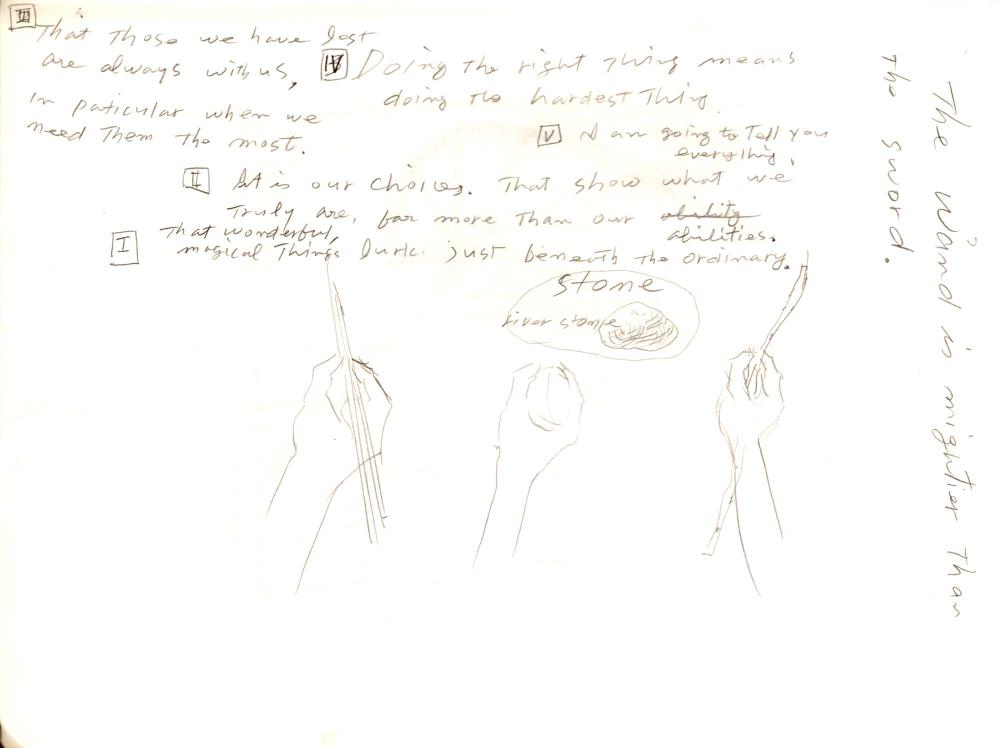 III
That those we have lost
are always with us,
In paticular when we
need them the most.
IV Doing the right thing means
doing the hardest thing.
V I am going to tell you
everything.
II It is our choices. That show what we
truly are, far more than our ability
abilities.
I That wonderful,
magical things lurk just beneath the ordinary.
stone
river stone
The wand is mightier than
the sword.